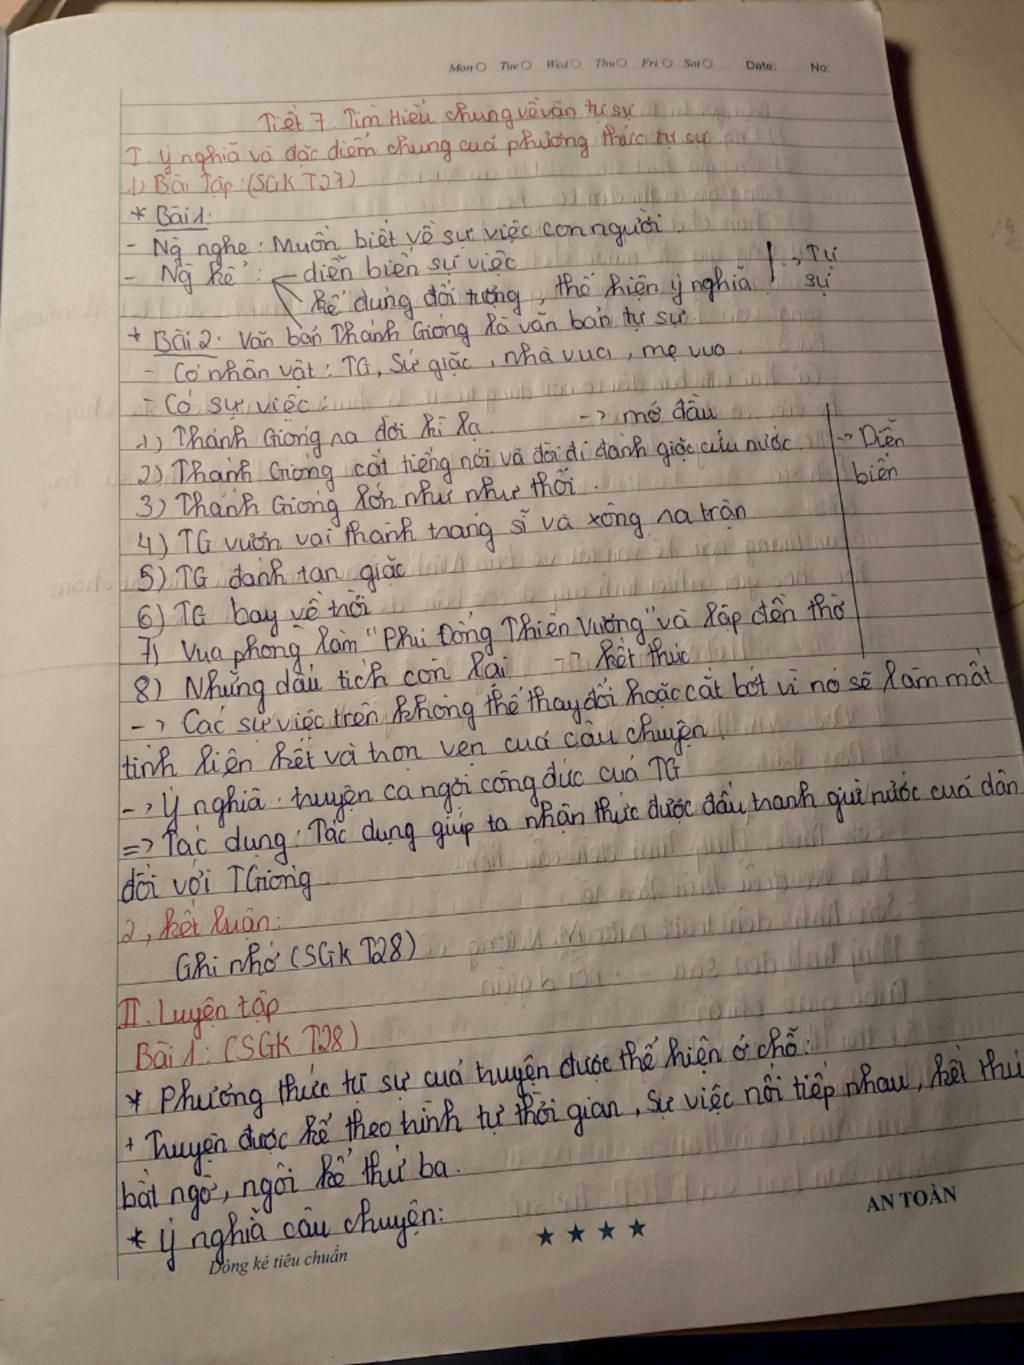 Mon Tue Wed Thu Fri Sat Date: No:
Tiết 7 Tìm Hiểu chung về văn tự sự
I. Ý nghĩa và đặc điểm chung của phương thức tự sự
1) Bài Tập: (SGK T27)
* Bài 1:
- Ng nghe: Muốn biết về sự việc con người
- Ng kể: diễn biến sự việc -> Tự
kể đúng đối tượng, thể hiện ý nghĩa sự
* Bài 2: Văn bản Thánh Gióng là văn bản tự sự
- Có nhân vật: TG, Sứ giặc, nhà vua, mẹ vua
- Có sự việc:
1) Thánh Gióng ra đời kì lạ -> mở đầu
2) Thánh Gióng cất tiếng nói và đòi đi đánh giặc cứu nước -> Diễn
3) Thánh Gióng lớn như như thổi. biến
4) TG vươn vai thành tráng sĩ và xông ra trận
5) TG đánh tan giặc
6) TG bay về trời
7) Vua phong làm "Phù Đổng Thiên Vương" và lập đền thờ
8) Những dấu tích còn lại -> kết thúc
-> Các sự việc trên không thể thay đổi hoặc cắt bớt vì nó sẽ làm mất
tính liên kết và trọn vẹn của câu chuyện
-> Ý nghĩa: truyện ca ngợi công đức của TG
=> Tác dụng: Tác dụng giúp ta nhận thức được đấu tranh giữ nước của dân
đối với TGióng
2, kết luận:
Ghi nhớ (SGK T28)
II. Luyện tập
Bài 1: (SGK T28)
* Phương thức tự sự của truyện được thể hiện ở chỗ:
+ Truyện được kể theo trình tự thời gian, sự việc nối tiếp nhau, kết thú
bất ngờ, ngôi kể thứ ba.
* Ý nghĩa câu chuyện:
Dòng kẻ tiêu chuẩn ★ ★ ★ ★ AN TOÀN